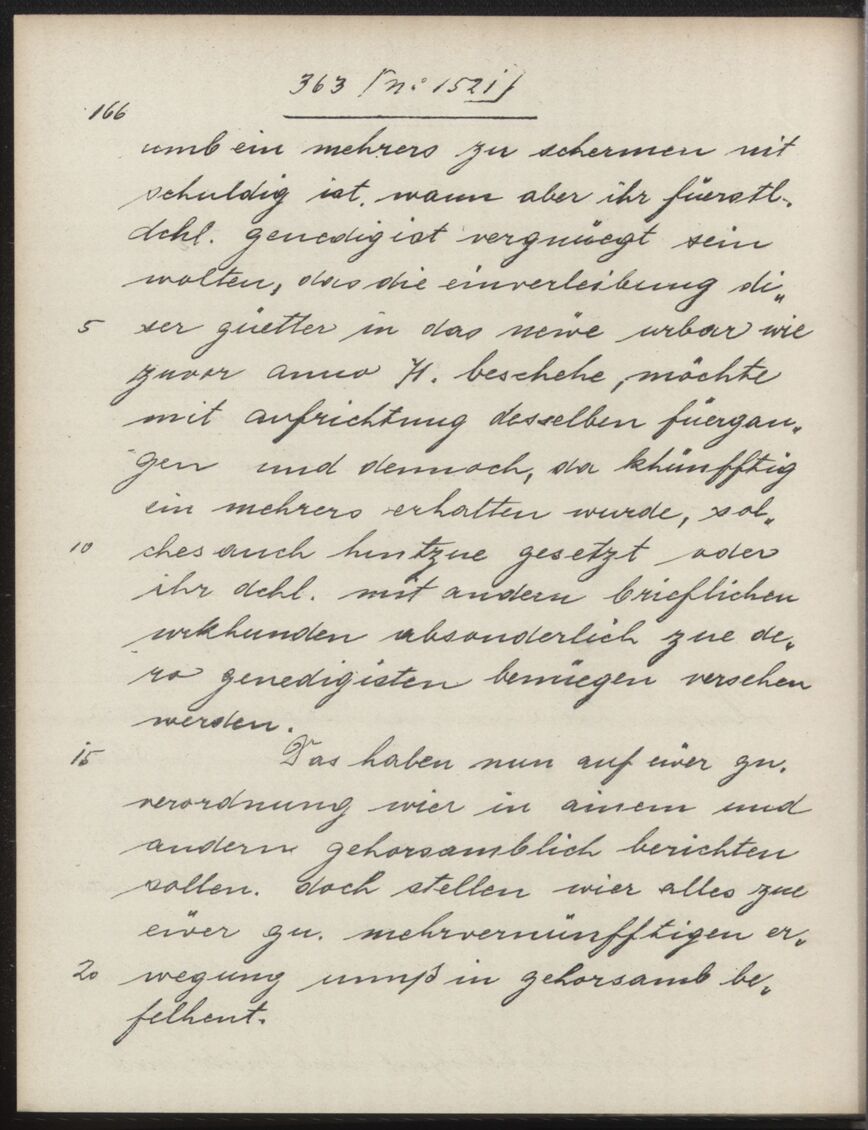 363 [n: 1521]
166
umb ein mehrers zu schermen nit
schuldig ist. wann aber ihr füerstl.
dchl. genedigist vergnüegt sein
wolten, das die einverleibung di„
5 ser güetter in das newe urbar wie
zuvor anno 71. beschehe, möchte
mit aufrichtung desselben füergan„
gen und dennoch, da khünfftig
ein mehrers erhalten wurde, sol„
10 ches auch hintzue gesetzt oder
ihr dchl. mit andern brieflichen
urkhunden absonderlich zue de„
ro genedigisten benüegen versehen
werden.
15 Das haben nun auf eüer gn.
verordnung wier in ainem und
andern gehorsamblich berichten
sollen. doch stellen wier alles zue
eüer gn. mehrvernünfftigen er„
20 wegung unnß in gehorsamb be„
felhent.